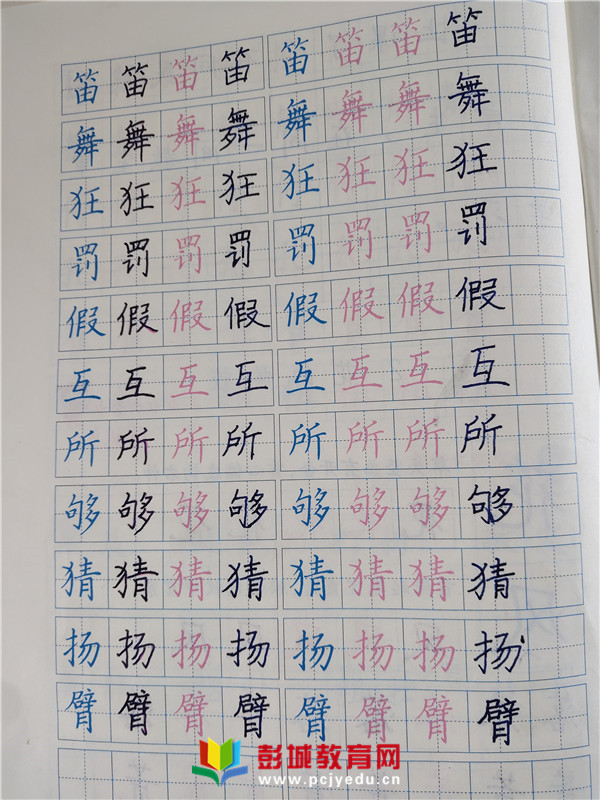 笛笛笛笛笛笛笛笛
舞舞舞舞舞舞舞舞
狂狂狂狂狂狂狂狂
罚罚罚罚罚罚罚罚
假假假假假假假假
互互互互互互互互
所所所所所所所所
够够够够够够够够
猜猜猜猜猜猜猜猜
扬扬扬扬扬扬扬扬
臂臂臂臂臂臂臂臂
彭城教育网
www.pcjyedu.cn